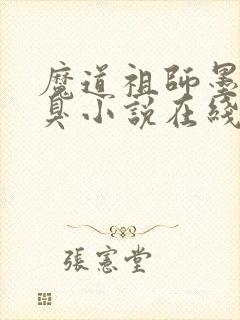 魔道祖師墨
臭小說在綫
張憲堂